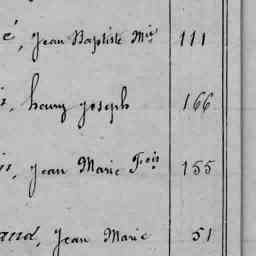 é, Jean Baptiste Mie 111
s, henry joseph 166
is, Jean Marie Fois 155
and, Jean Marie 51